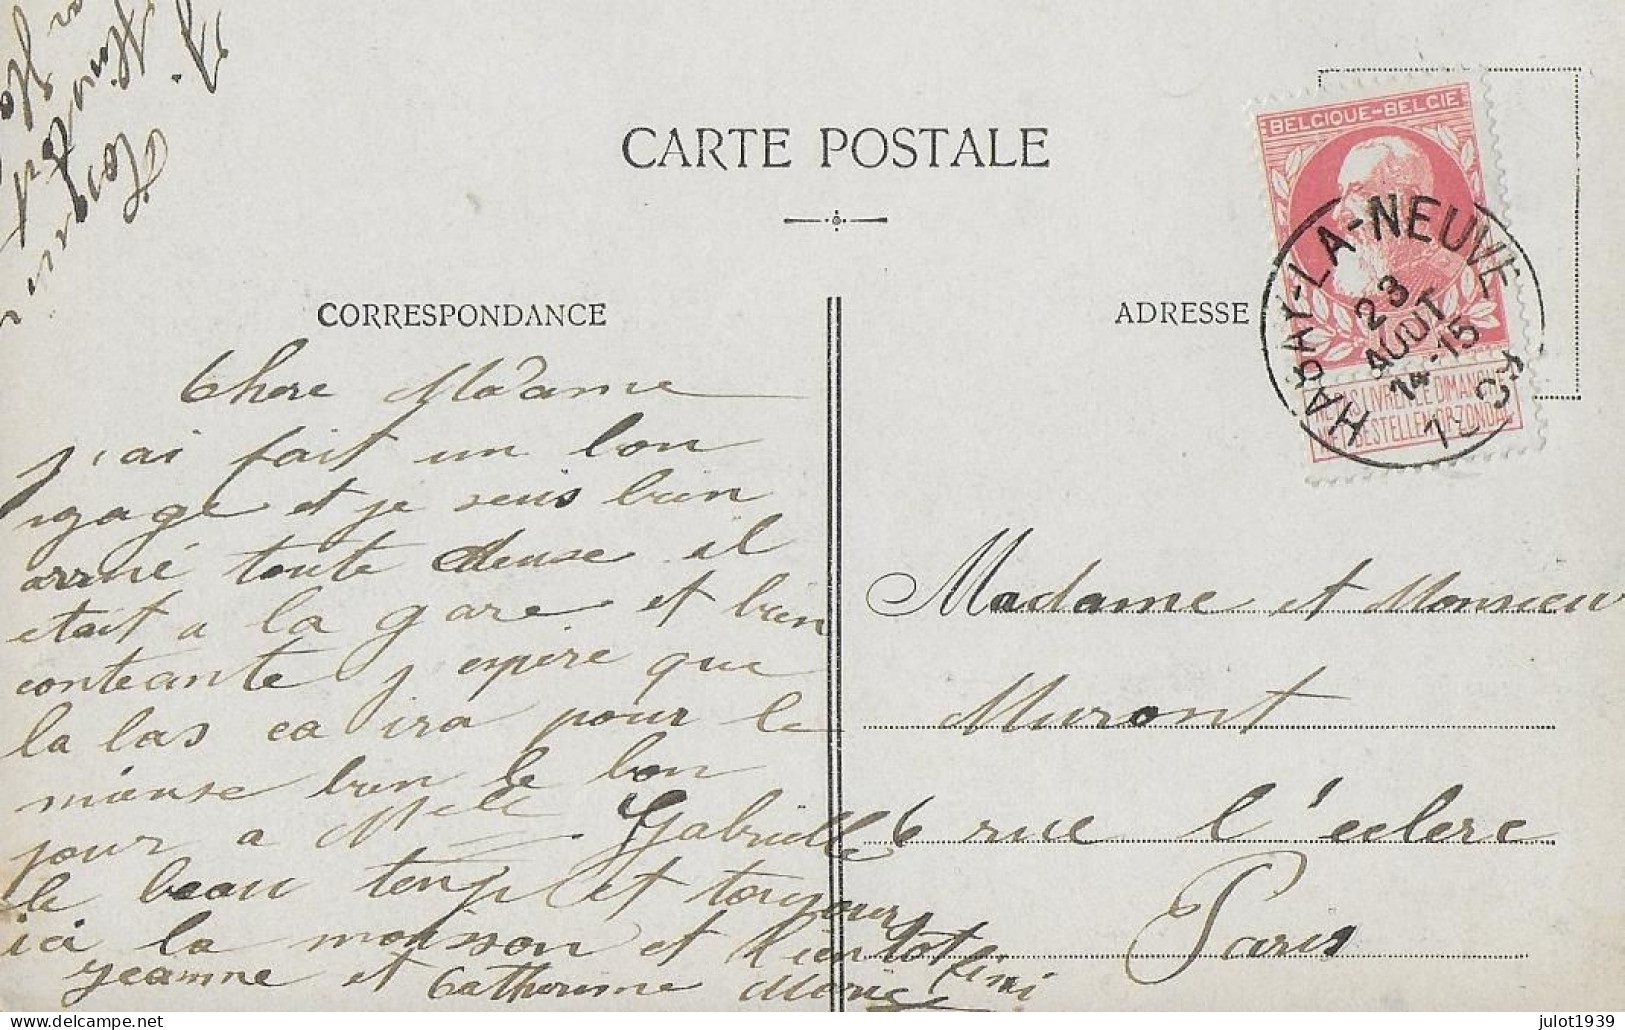 CARTE POSTALE
CORRESPONDANCE
ADRESSE
BELGIQUE-BELGIE
HABAY-LA-NEUVE
23
AOUT
14-15
NE PAS LIVRER LE DIMANCHE
NIET BESTELLEN OP ZONDAG
Chere Madame
j'ai fait un bon
et je suis bien
arrivé toute deuse il
etait a la gare et bien
conteante j espere que
la bas ca ira pour le
mieuse bien le bon
jour a Melle Gabrielle
le beau temp et toujours
ici la moisson et bientot fini
Jeanne et Catherine Marie
Madame et Monsieur
Muront
6 rue l'eclerc
Paris
julot1939